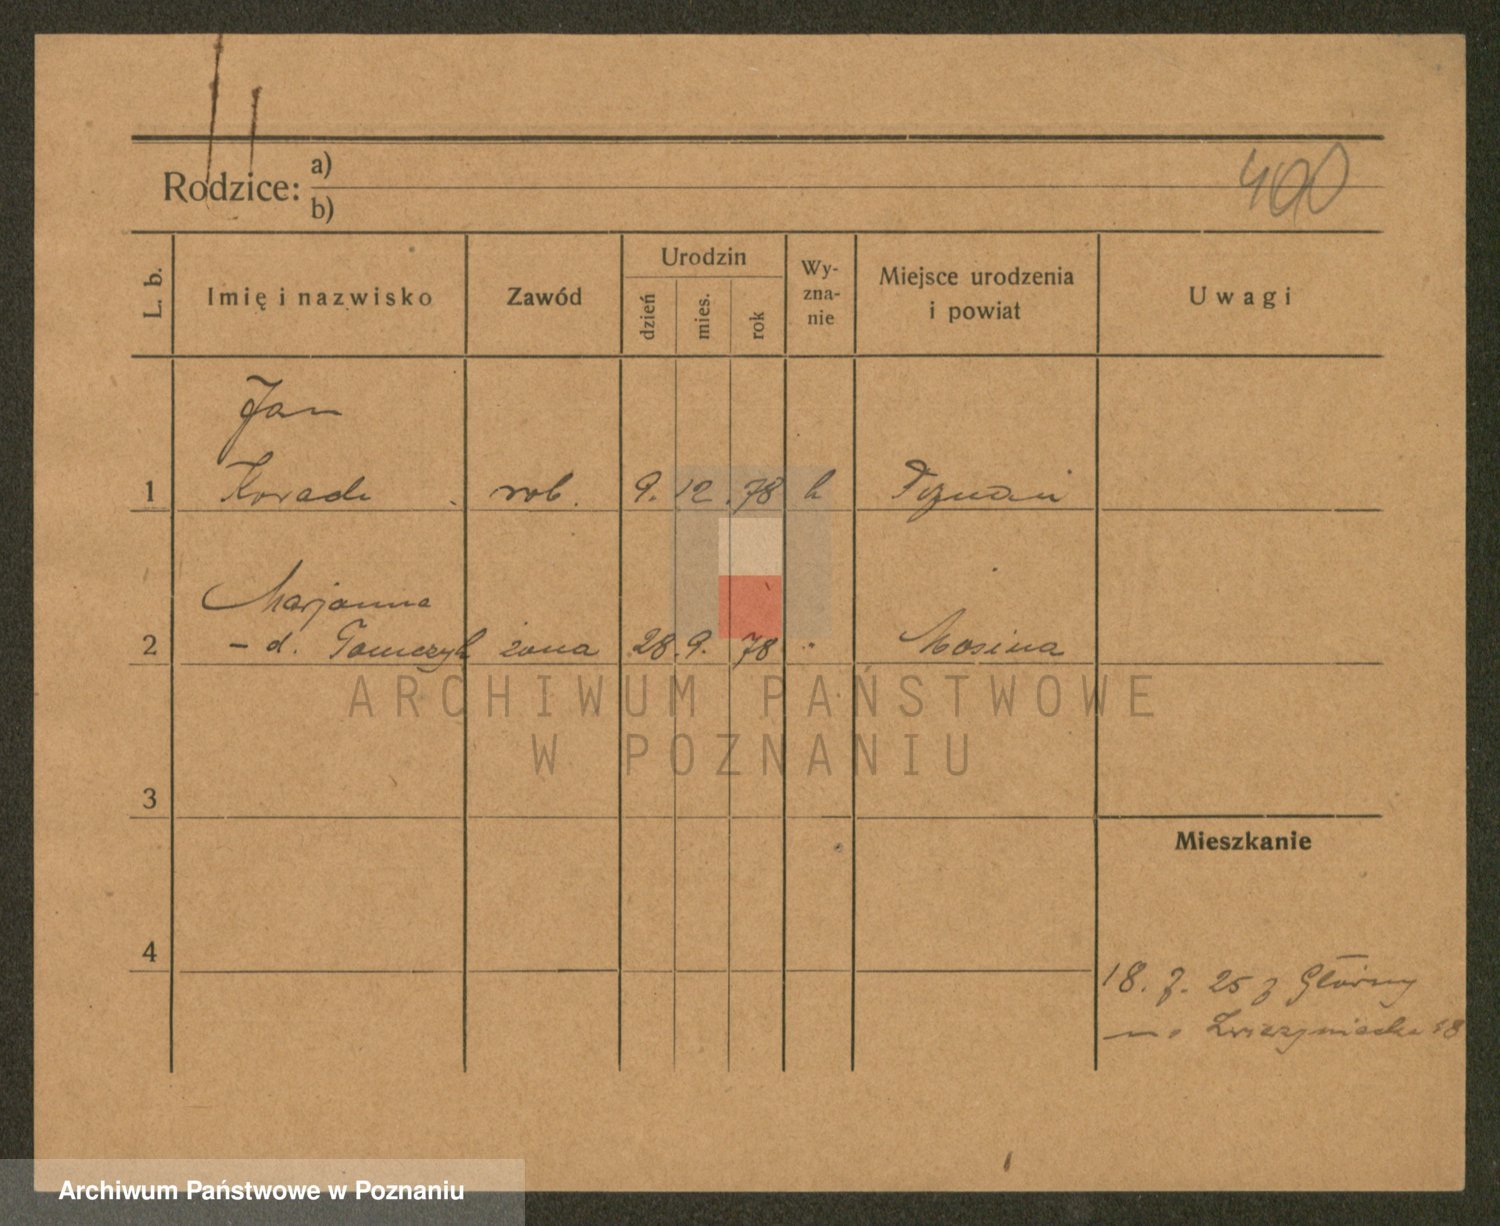 Rodzice: a)
b)
400
L. b.
Imię i nazwisko
Zawód
Urodzin
dzień
mies.
rok
Wy-
zna-
nie
Miejsce urodzenia
i powiat
Uwagi
Jan
1 rob. 9. 12. 78 k Poznań
Marjanna
2 - d. Tomczyk żona 28. 9. 78 " Mosina
ARCHIWUM PAŃSTWOWE
W POZNANIU
3
Mieszkanie
4
18. 7. 25 z Główny
Zwierzyniecka 18
Archiwum Państwowe w Poznaniu